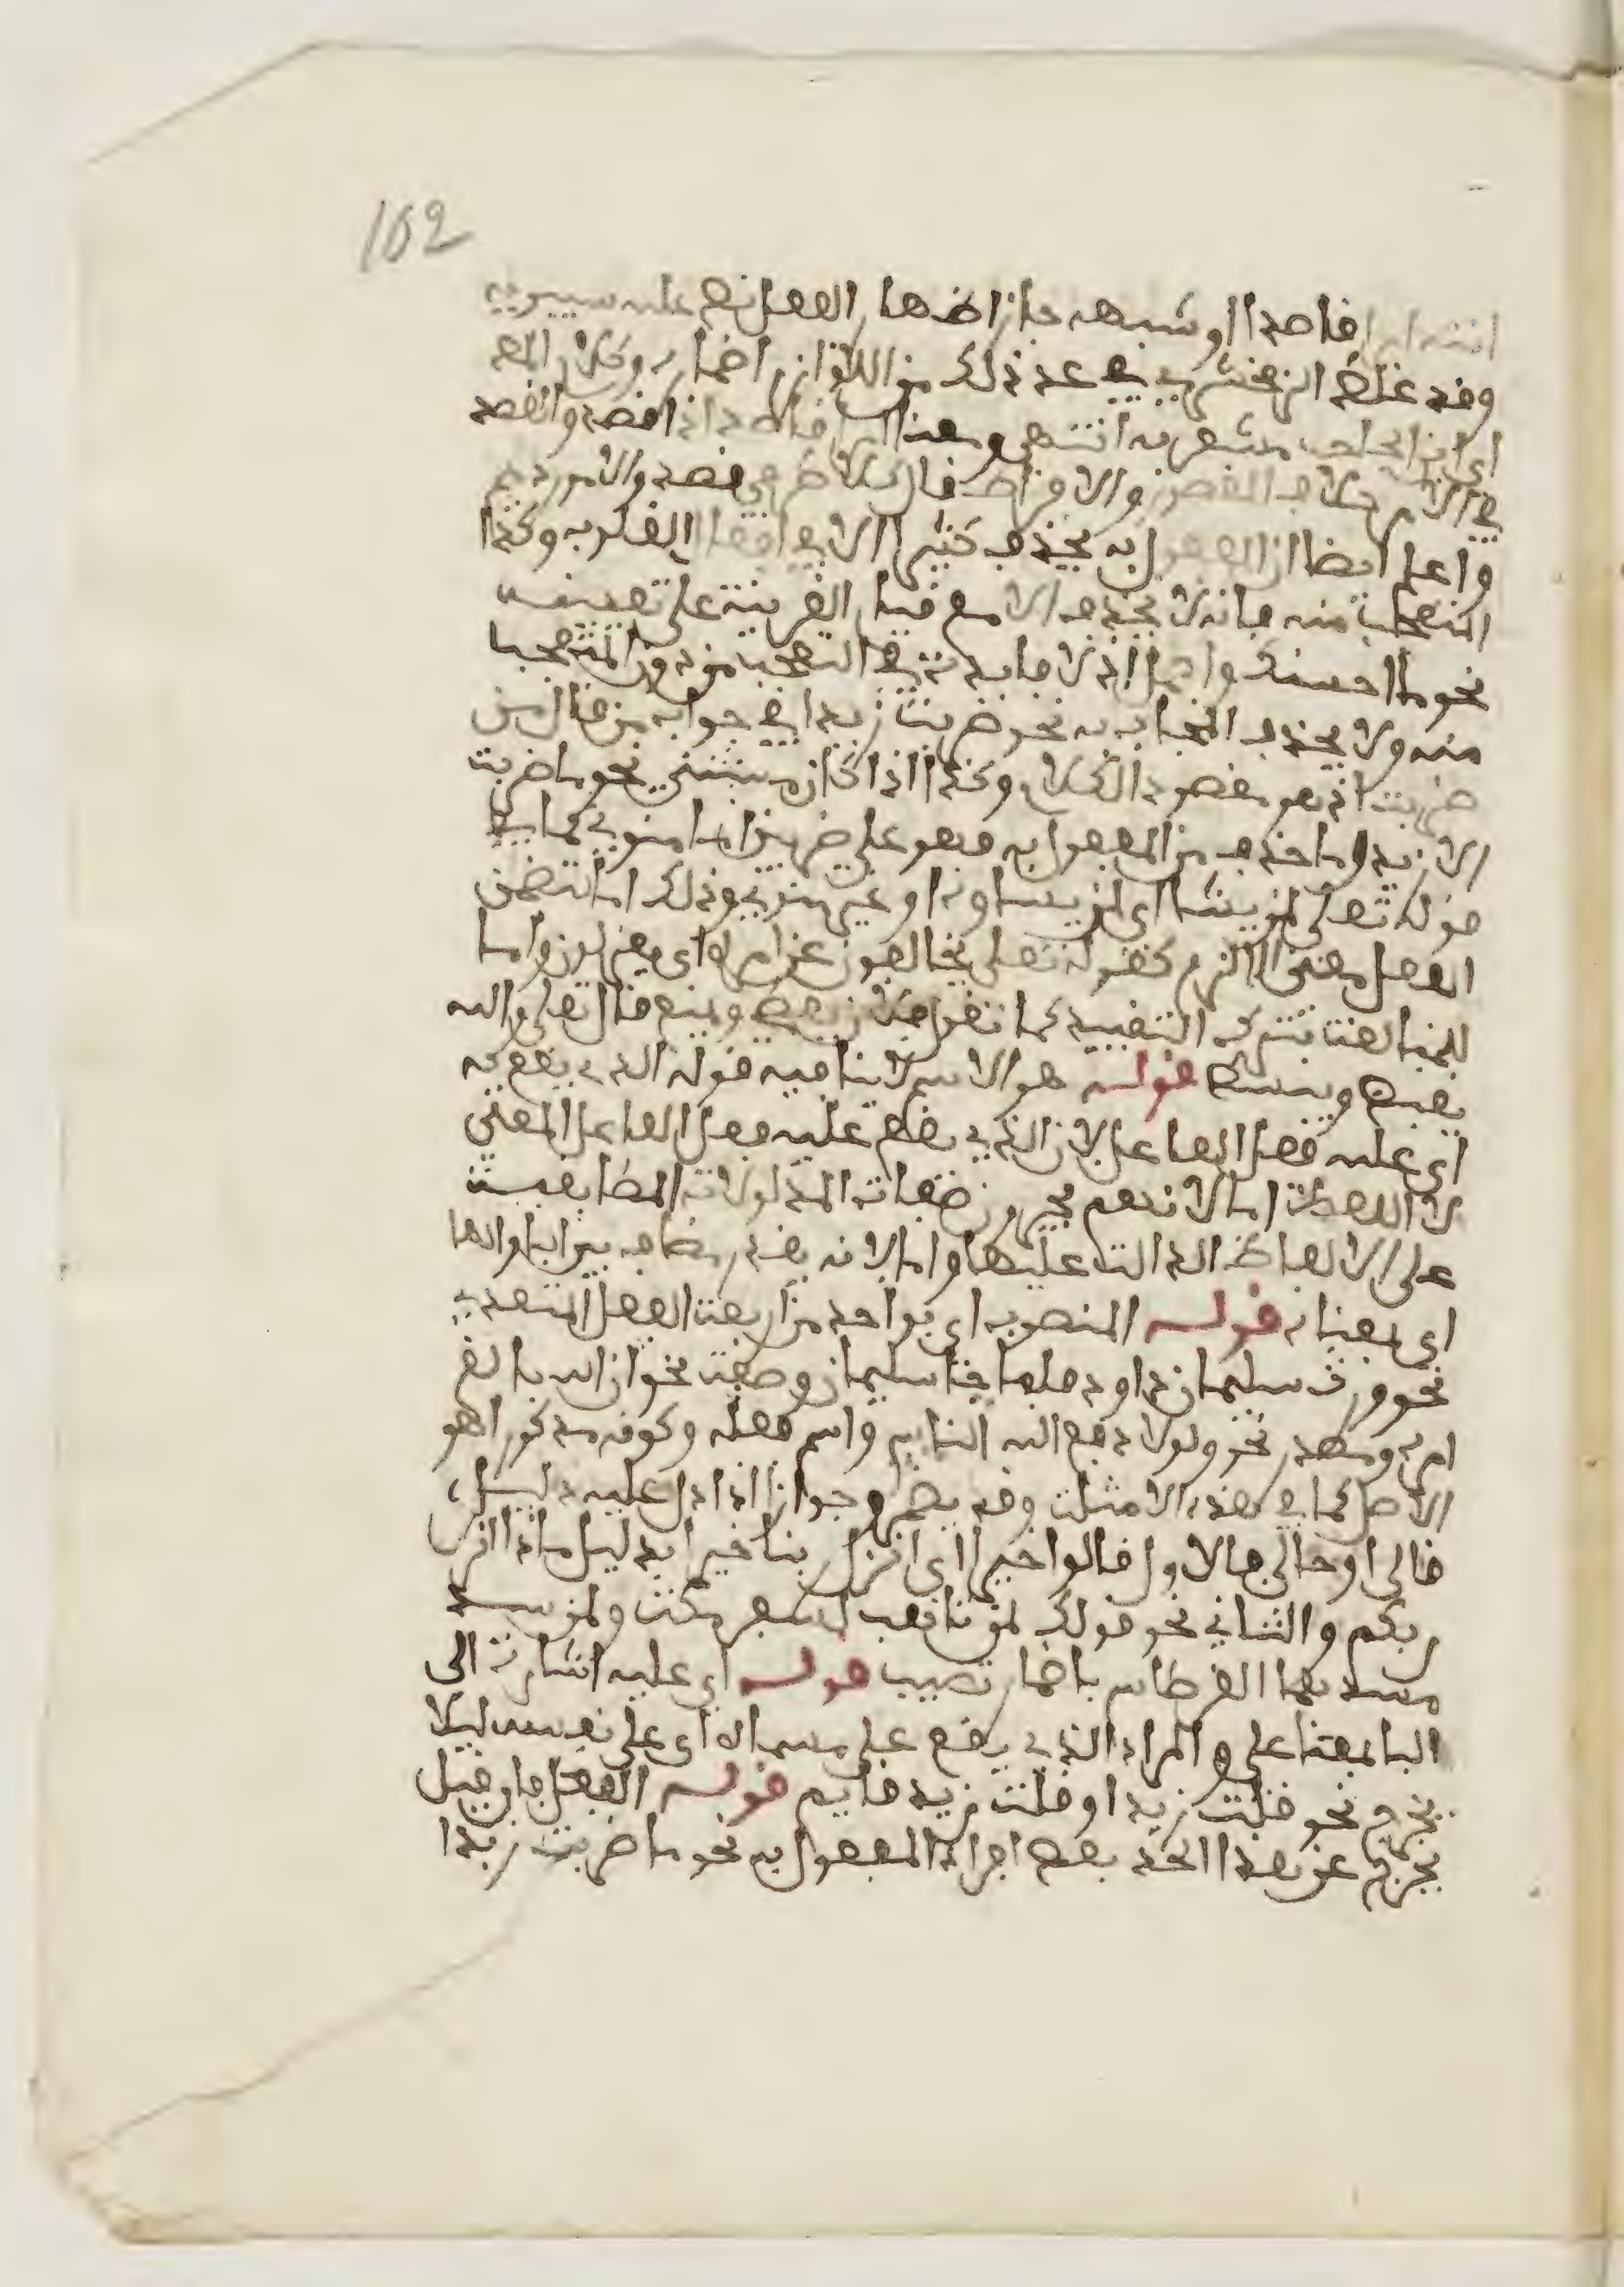 162
انته امرا قاصدا او شبهه جاز اظهار الفعل نص عليه سيبويه
وقد غلط الزمخشري في عد ذلك من اللازم اضماره وكلام المص
اي ابن الحاجب مشعر به انتهى ومعنا امرا قاصدا ذا قصد والقصد
في الامر خلاف القصور والافراط فال كلا طرفي قصد الامور ذميم
واعلم ايضا ان المفعول به يحذف كثيرا الا في افعال القلوب وكذا
المتعجب منه فانه لا يحذف الا مع قيام القرينة على تعيينه
نحو ما احسنك واجمل اذ لا فايدة في التعجب من دون المتعجب
منه ولا يحذف المجاب به نحو ضربت زيدا في جواب من قال من
ضربت اذ هو مقصود الكلام وكذا اذا كان مستثنى نحو ما ضربت
الا زيدا وما حذف من المفعول به فهو على ضربين اما منوي كما في
قوله تعلى لمن يشا اي لمن يشاوه او غير منوي وذلك اما لتضمن
الفعل معنى اللازم كقوله تعلى يخالفون عن امره اي يعدلون واما
للمبالغة بترك التقييد كما تقول فلان يعطي ويمنع قال تعلى والله
يقبض ويبسط قوله هو الاسم لا ينافيه قوله الذي يقع به
اي عليه فعل الفاعل لان الذي يقع عليه فعل الفاعل المعنى
لا اللفظ اما لانهم يجرون صفات المدلولات المطابقية
على الالفاظ الدالة عليها واما لانه يقدر مضاف بين البا والها
اي بمعناه قوله المنصوب اي بواحد من اربعة الفعل المتعدي
نحو وورث سليمان داود فلما جا سليمان وصفت نحو ان الله بالغ
امره ومصدر نحو ولولا دفع الله الناس واسم فعله وكونه مذكورا هو
الاصل كما في هذه الامثلة وقد يضمر جوازا اذا دل عليه دليل
قالي او حالي فالاول قالوا خيرا اي انزل ربنا خيرا بدليل ماذا انزل
ربكم والثاني نحو قولك لمن تاهب لسفر مكة ولمن سدد
سهما القرطاس باضمار تصيب قوله اي عليه اشارة الى
البا بمعنا على والمراد الذي يقع على مسماه اي على نفسه ليلا
يخرج نحو قلت زيدا وقلت زيد قايم قوله الفعل فان قيل
يخرج عن هذا الحد بعض افراد المفعول به نحو ما ضربت زيدا